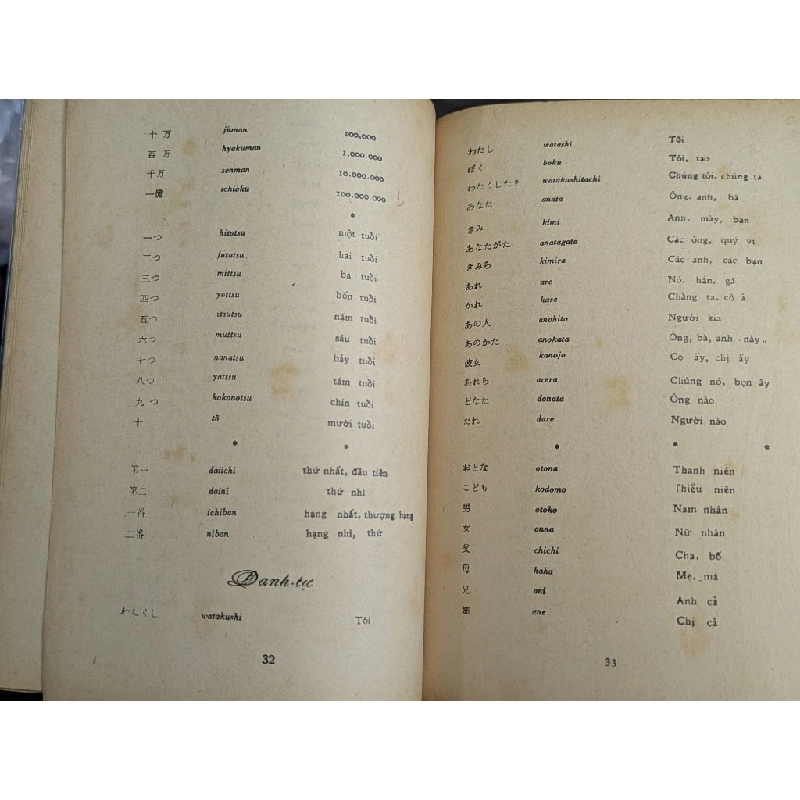 十万 jūman 100.000
百万 hyakuman 1.000.000
千万 senman 10.000.000
一億 ichioku 100.000.000
*
一つ hitotsu một tuổi
二つ futatsu hai tuổi
三つ mittsu ba tuổi
四つ yottsu bốn tuổi
五つ itsutsu năm tuổi
六つ muttsu sáu tuổi
七つ nanatsu bảy tuổi
八つ yattsu tám tuổi
九つ kokonotsu chín tuổi
十 tō mười tuổi
* *
第一 daiichi thứ nhất, đầu tiên
第二 daini thứ nhì
一番 ichiban hạng nhất, thượng hạng
二番 niban hạng nhì, thứ
Danh-tự
watakushi Tôi
32
わたし watashi Tôi
ぼく boku Tôi, tao
わたくしたち watakushitachi Chúng tôi, chúng ta
あなた anata Ông, anh, bà
きみ kimi Anh, mày, bạn
あなたがた anatagata Các ông, quý vị
きみら kimira Các anh, các bạn
あれ are Nó, hắn, gã
かれ kare Chàng ta, cô ả
あの人 anohito Người kia
あのかた anokata Ông, bà, anh này..
彼女 kanojo Cô ấy, chị ấy
あれら arera Chúng nó, bọn ấy
どなた donata Ông nào
だれ dare Người nào
* * *
おとな otona Thanh niên
こども kodomo Thiếu niên
男 otoko Nam nhân
女 onna Nữ nhân
父 chichi Cha, bố
母 haha Mẹ, má
兄 ani Anh cả
ane Chị cả
33